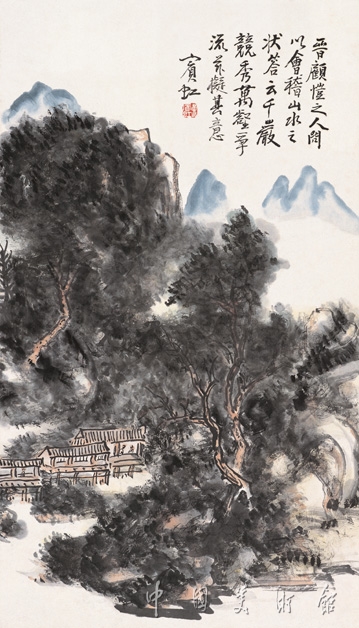 晋顧愷之人問
以會稽山水之
狀答云千巖
競秀萬壑爭
流茲擬其意
賓虹
中國美術館